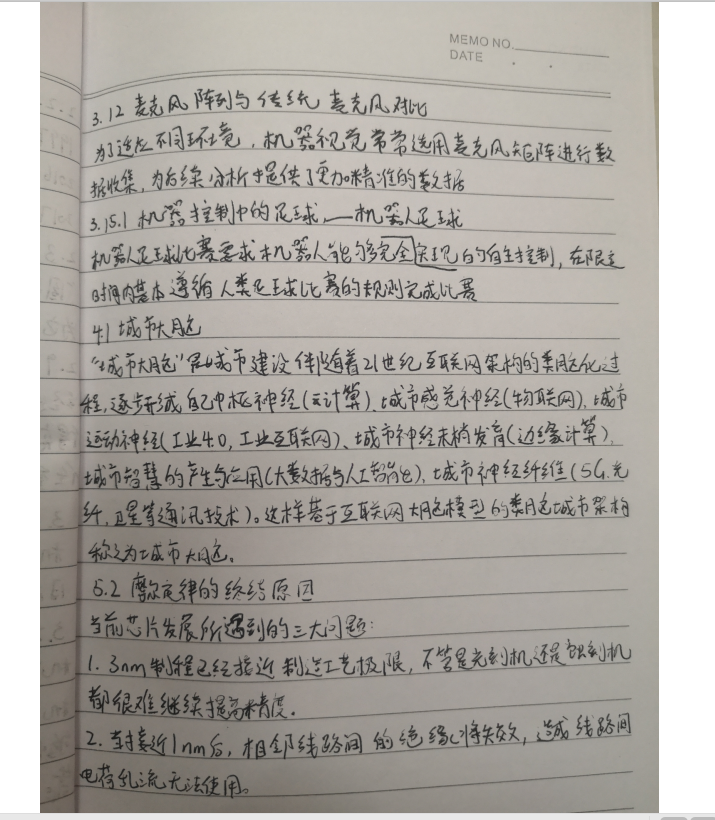 MEMO NO.
DATE
3.12 麦克风阵列与传统麦克风对比
为了适应不同环境，机器视觉常常选用麦克风矩阵进行数
据收集，为后续分析提供了更加精准的数据
3.15.1 机器控制中的足球——机器人足球
机器人足球比赛要求机器人能够完全实现自的自主控制，在限定
时间内基本遵循人类足球比赛的规则完成比赛
4.1 城市大脑
“城市大脑”是城市建设伴随着21世纪互联网架构的类脑化过
程，逐步形成自己中枢神经(云计算)、城市感觉神经(物联网)、城市
运动神经(工业4.0，工业互联网)、城市神经末梢发育(边缘计算)、
城市智慧的产生与应用(大数据与人工智能)、城市神经纤维(5G、光
纤、卫星等通讯技术)。这样基于互联网大脑模型的类脑城市架构
称之为城市大脑。
5.2 摩尔定律的终结原因
当前芯片发展所遇到的三大问题：
1. 3nm制程已经接近制造工艺极限，不管是光刻机还是蚀刻机
都很难继续提高精度.
2. 当接近1nm后，相邻线路间的绝缘将失效，造成线路间
电荷乱流无法使用。